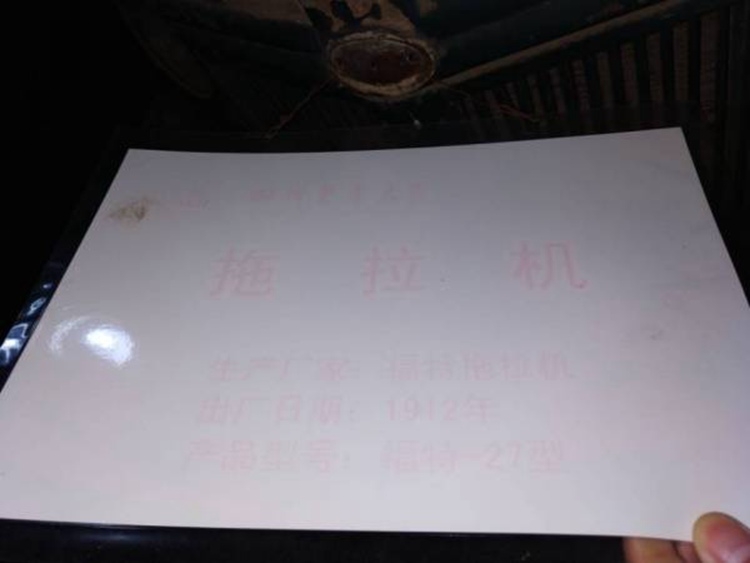 拖拉机
生产厂家：福特拖拉机
出厂日期：1912年
产品型号：福特-27型